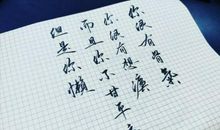 你没有骨氣
你没有想
而且你不甘平
但是你懒